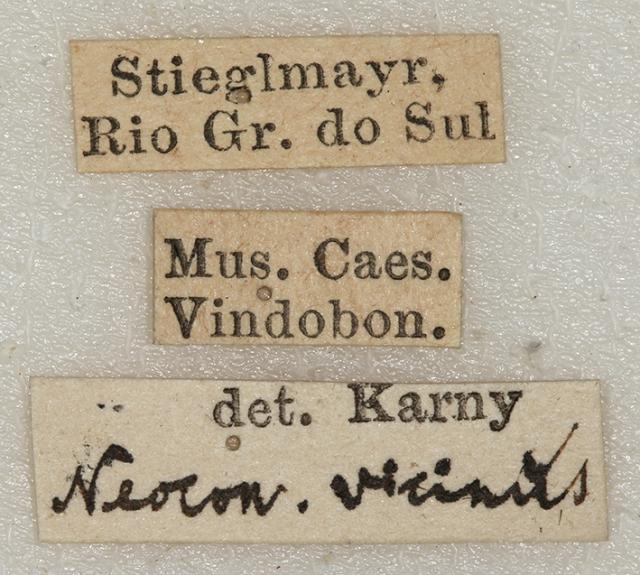 Stieglmayr,
Rio Gr. do Sul
Mus. Caes.
Vindobon.
det. Karny
Neocon. vicinus